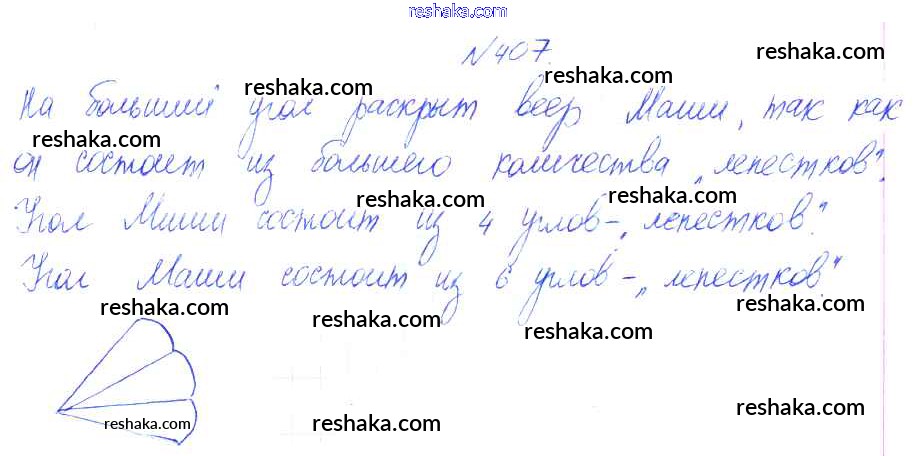 reshaka.com
№407.
reshaka.com
reshaka.com
reshaka.com
На больший угол раскрыт веер Маши, так как
reshaka.com
reshaka.com
он состоит из большего количества „лепестков".
reshaka.com
reshaka.com
Угол Миши состоит из 4 углов-„лепестков".
Угол Маши состоит из 6 углов-„лепестков".
reshaka.com
reshaka.com
reshaka.com
reshaka.com
reshaka.com
reshaka.com
reshaka.com